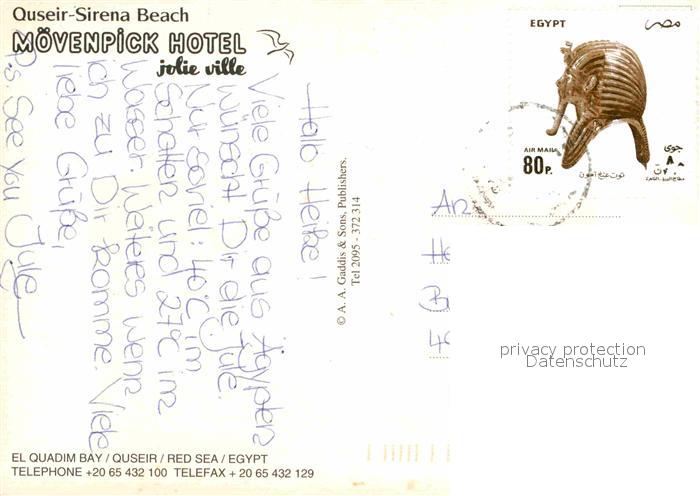 Quseir-Sirena Beach
MÖVENPICK HOTEL
jolie ville
Hallo Heike!
Viele Grüße aus Ägypten
wünscht Dir die Jule.
Nur soviel: 40°C im
Schatten und 27°C im
Wasser. Weiteres wenn
ich zu Dir komme. Viele
liebe Grüße,
Jule
P.s. See You
© A. A. Gaddis & Sons, Publishers.
Tel 2095 - 372 314
EGYPT
مصر
AIR MAIL
80P.
جوى
٨٠
توت عنخ آمون
An
privacy protection
Datenschutz
EL QUADIM BAY / QUSEIR / RED SEA / EGYPT
TELEPHONE +20 65 432 100 TELEFAX + 20 65 432 129